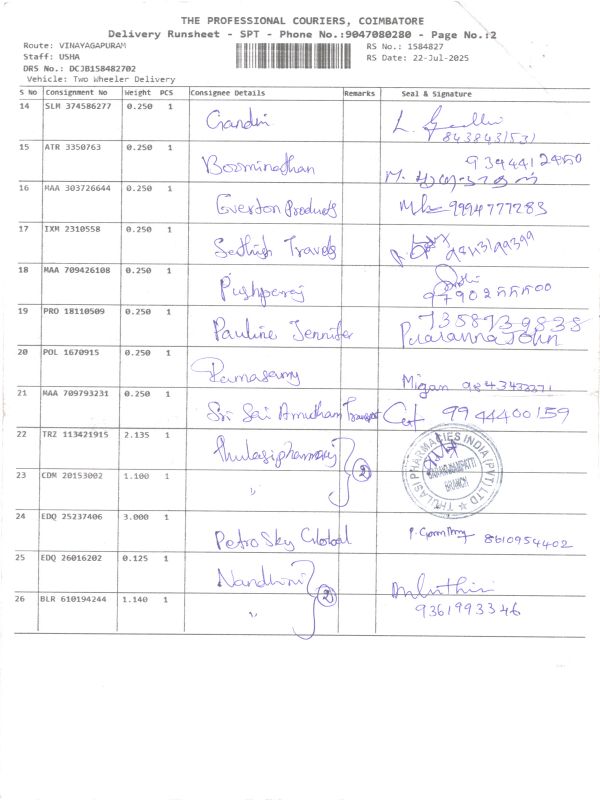 THE PROFESSIONAL COURIERS, COIMBATORE
Delivery Runsheet - SPT - Phone No.:9047080280 - Page No.:2
Route: VINAYAGAPURAM RS No.: 1584827
Staff: USHA RS Date: 22-Jul-2025
DRS No.: DCJB158482702
Vehicle: Two Wheeler Delivery
S No Consignment No Weight PCS Consignee Details Remarks Seal & Signature
14 SLM 374586277 0.250 1 Gandhi L.
8438431531
15 ATR 3350763 0.250 1 Boominathan 9344412450
16 MAA 303726644 0.250 1 Everton Products 9994777283
17 IXM 2310558 0.250 1 Sethish Travels
18 MAA 709426108 0.250 1 Pushparaj
9790255500
19 PRO 18110509 0.250 1 Pauline Jennifer 7358739838
John
20 POL 1670915 0.250 1 Ramasamy Migan
21 MAA 709793231 0.250 1 Sri Sai Amudham Transport 9944400159
22 TRZ 113421915 2.135 1 Thulasi pharmacy
THULASI PHARMACIES INDIA (PVT) LTD
BRANCH
23 CDM 20153002 1.100 1 " 2
24 EDQ 25237406 3.000 1 Petro Sky Global 8610954402
25 EDQ 26016202 0.125 1 Nandhini
26 BLR 610194244 1.140 1 " 2 9361993346